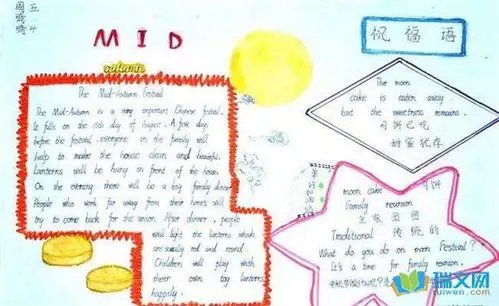 周五
MID
autumn
祝福语
The Mid-Autumn Festival
The Mid-Autumn is a very important Chinese festival.
It falls on the 15th day of August. A few days
before the festival, everyone in the family will
help to make the house clean and beautiful.
Lanterns will be hung in front of the house.
On the evening there will be a big family dinner.
People who work far away from their homes will
try to come back for the union. After dinner, people
will light the lanterns which
are usually red and round.
Children will play with
their own toy lanterns
happily.
The moon
cake is eaten away
but the sweetness remains.
月饼已吃
甜蜜犹存
moon cake 月饼
Family reunion
全家团圆
Traditional 传统的
What do you do on moon Festival?
It's a time for family reunion.
瑞文网
ruiwen.com